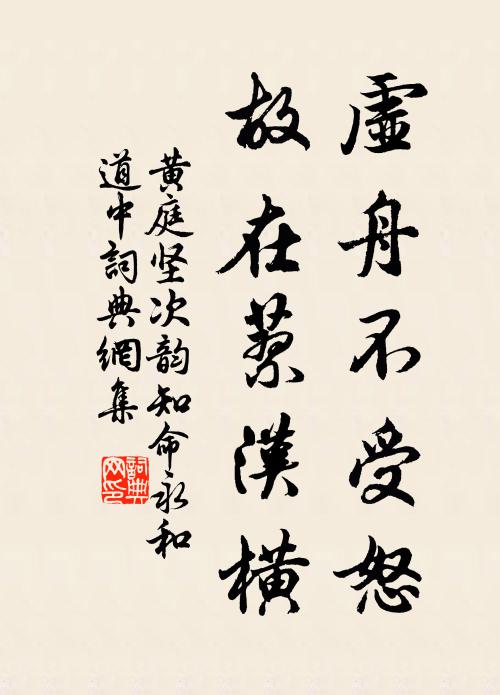 虛舟不受怒
故在漢橫
黄庭坚次韵知命永和
道中詞典網集
詞典
网印